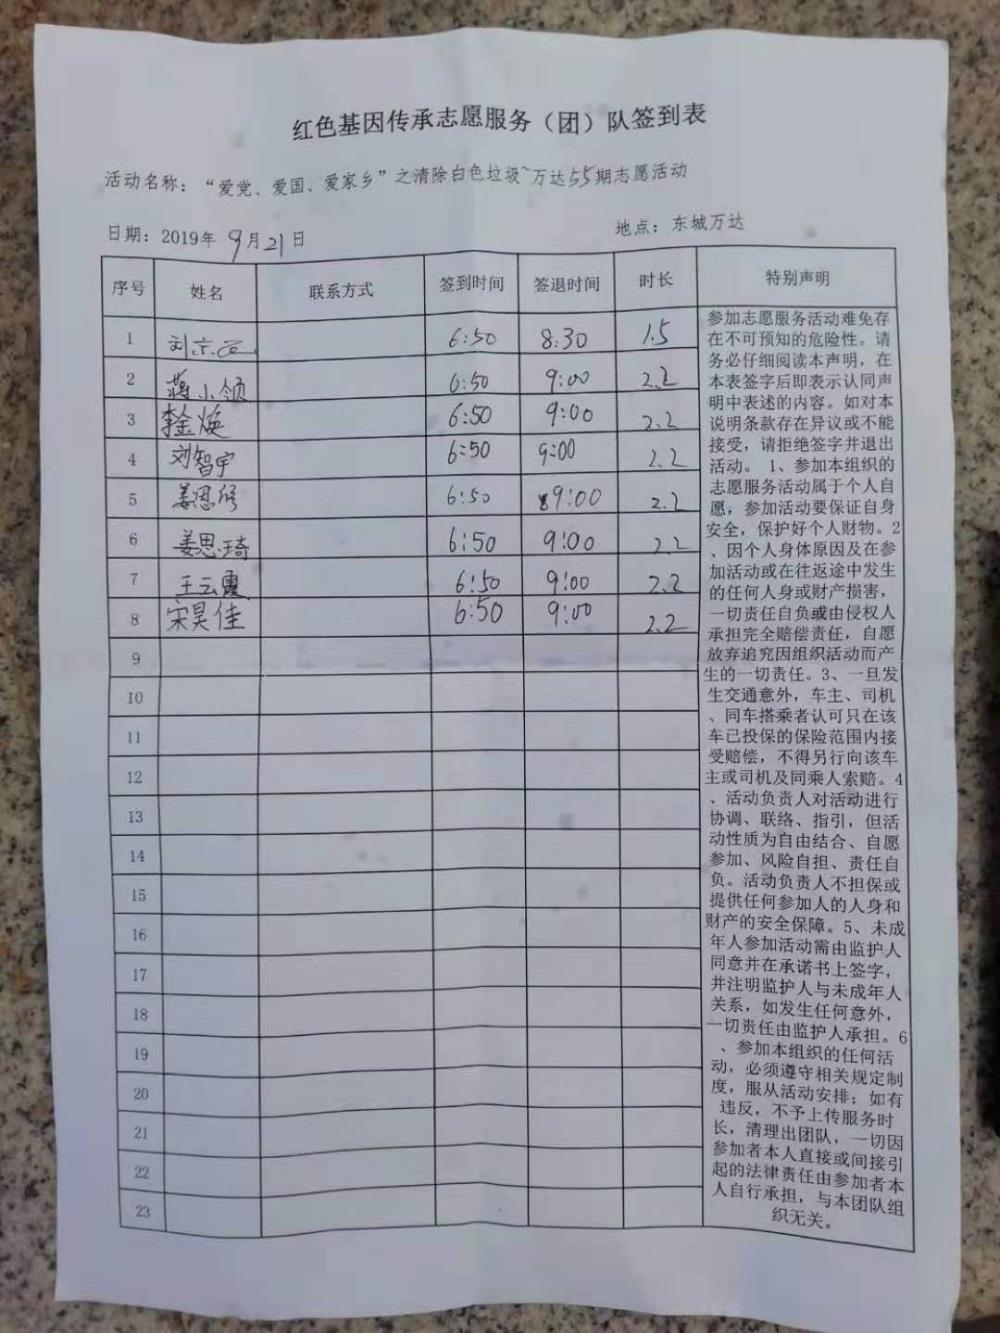 红色基因传承志愿服务（团）队签到表
活动名称：“爱党、爱国、爱家乡”之清除白色垃圾~万达55期志愿活动
日期：2019年 9月21日
地点：东城万达
序号 姓名 联系方式 签到时间 签退时间 时长 特别声明
1 刘京 6:50 8:30 1.5
2 蒋小领 6:50 9:00 2.2
3 李金焕 6:50 9:00 2.2
4 刘智宇 6:50 9:00 2.2
5 姜恩 6:50 9:00 2.2
6 姜思琦 6:50 9:00 2.2
7 王云霞 6:50 9:00 2.2
8 宋昊佳 6:50 9:00 2.2
9
10
11
12
13
14
15
16
17
18
19
20
21
22
23
参加志愿服务活动难免存
在不可预知的危险性。请
务必仔细阅读本声明，在
本表签字后即表示认同声
明中表述的内容。如对本
说明条款存在异议或不能
接受，请拒绝签字并退出
活动。 1、参加本组织的
志愿服务活动属于个人自
愿，参加活动要保证自身
安全，保护好个人财物。2
、因个人身体原因及在参
加活动或在往返途中发生
的任何人身或财产损害，
一切责任自负或由侵权人
承担完全赔偿责任，自愿
放弃追究因组织活动而产
生的一切责任。3、一旦发
生交通意外，车主、司机
、同车搭乘者认可只在该
车已投保的保险范围内接
受赔偿，不得另行向该车
主或司机及同乘人索赔。4
、活动负责人对活动进行
协调、联络、指引，但活
动性质为自由结合、自愿
参加、风险自担、责任自
负。活动负责人不担保或
提供任何参加人的人身和
财产的安全保障。5、未成
年人参加活动需由监护人
同意并在承诺书上签字，
并注明监护人与未成年人
关系，如发生任何意外，
一切责任由监护人承担。6
、参加本组织的任何活
动，必须遵守相关规定制
度，服从活动安排；如有
违反，不予上传服务时
长，清理出团队，一切因
参加者本人直接或间接引
起的法律责任由参加者本
人自行承担，与本团队组
织无关。